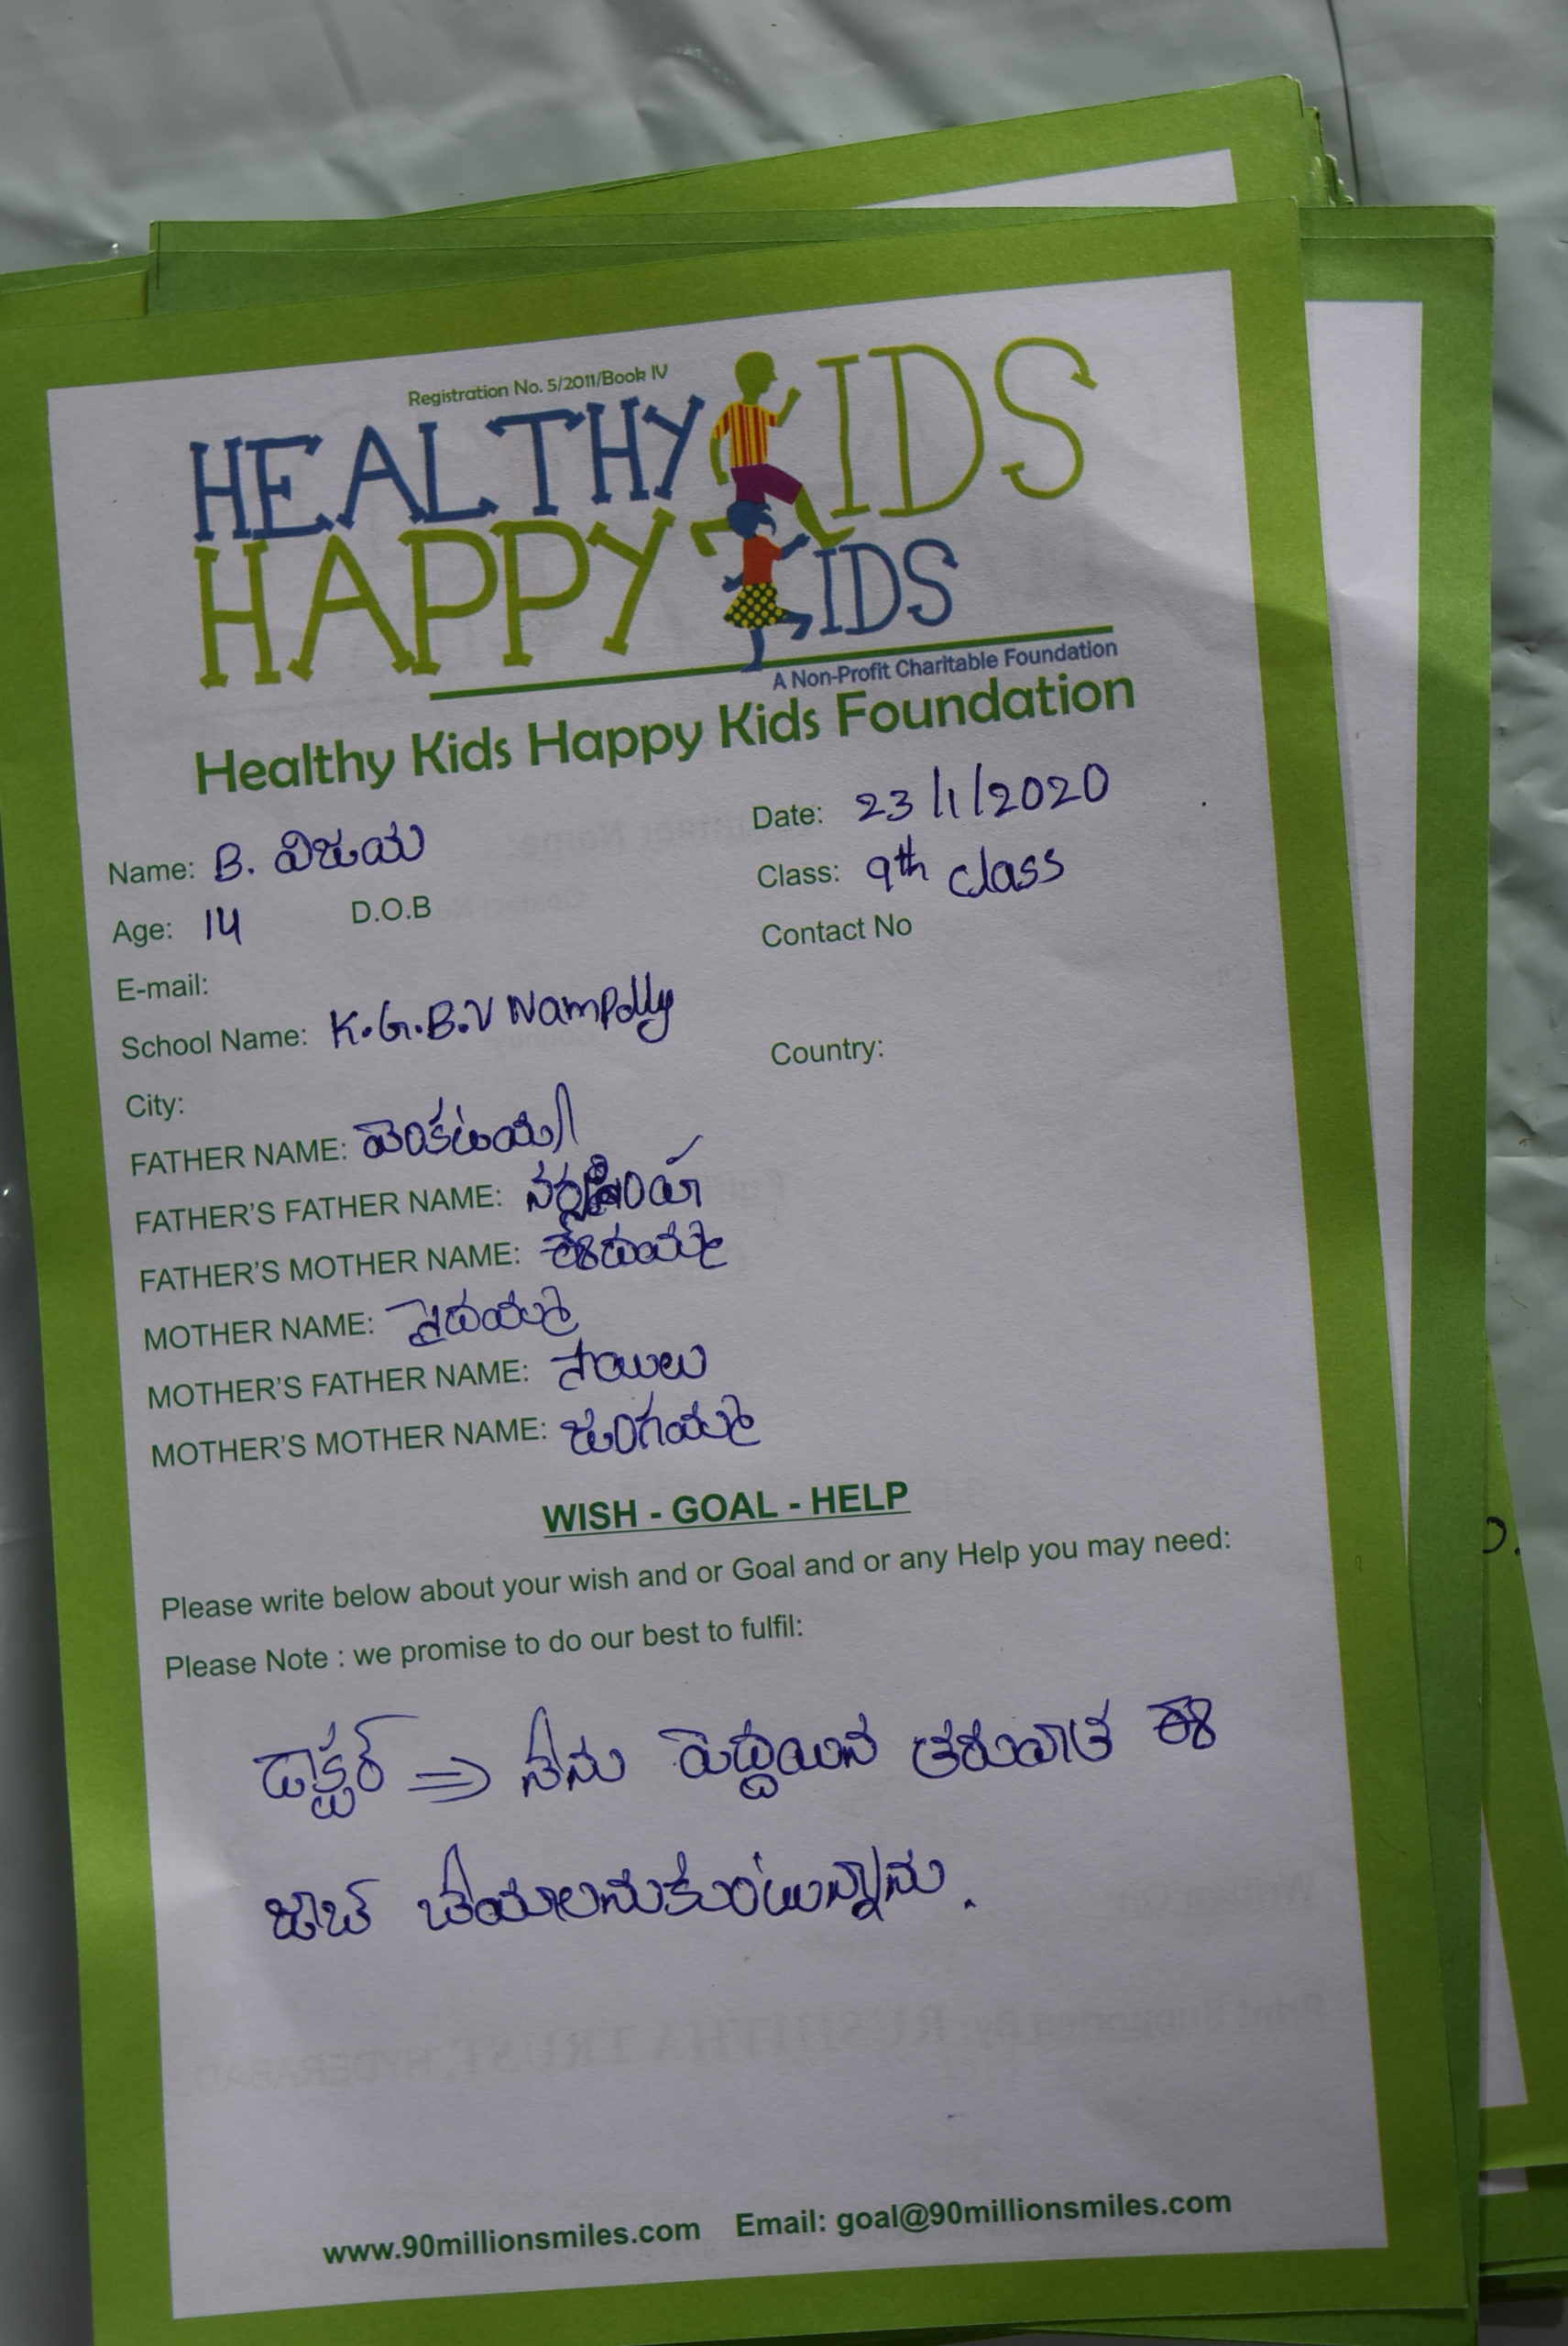 Registration No. 5/2011/Book IV
HEALTHY KIDS
HAPPY KIDS
A Non-Profit Charitable Foundation
Healthy Kids Happy Kids Foundation
Name: B. విజయ Date: 23/1/2020
Age: 14 D.O.B Class: 9th class
E-mail: Contact No
School Name: K.G.B.V Nampally
City: Country:
FATHER NAME: వెంకటయ్య
FATHER'S FATHER NAME:
FATHER'S MOTHER NAME: ఈదయ్మ
MOTHER NAME: సైదమ్మ
MOTHER'S FATHER NAME: సాయిలు
MOTHER'S MOTHER NAME: జంగమ్మ
WISH - GOAL - HELP
Please write below about your wish and or Goal and or any Help you may need:
Please Note : we promise to do our best to fulfil:
డాక్టర్ ⇒ నేను పెద్దయిన తరువాత ఈ
జాబ్ చేయాలనుకుంటున్నాను.
www.90millionsmiles.com Email: goal@90millionsmiles.com